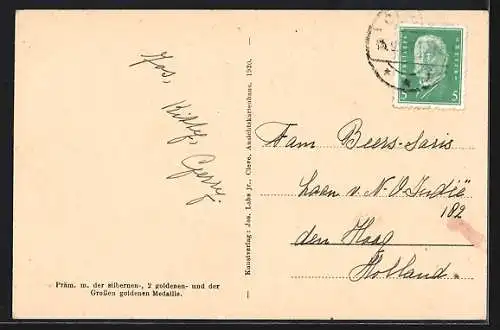 Jos, Kitty, Gerry.
Präm. m. der silbernen-, 2 goldenen- und der
Großen goldenen Medaille.
Kunstverlag: Jos. Lahs jr., Cleve, Ansichtskartenhaus. 1930.
5 5
Fam Beers-Saris
Laan v. N. O Indië
182
den Haag
Holland.